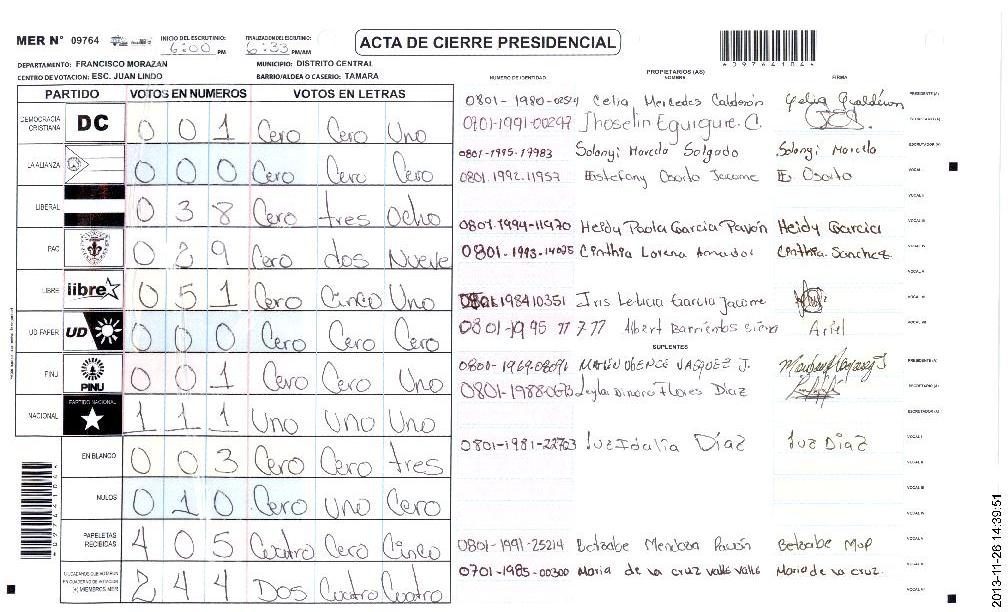 MER N° 09764
INICIO DEL ESCRUTINIO: 6:00 PM
FINALIZACION DEL ESCRUTINIO: 6:33 PM/AM
ACTA DE CIERRE PRESIDENCIAL
DEPARTAMENTO: FRANCISCO MORAZAN
MUNICIPIO: DISTRITO CENTRAL
CENTRO DE VOTACION: ESC. JUAN LINDO
BARRIO/ALDEA O CASERIO: TAMARA
PARTIDO VOTOS EN NUMEROS VOTOS EN LETRAS
DEMOCRACIA CRISTIANA DC 0 0 1 Cero Cero Uno
LA ALIANZA 0 0 0 Cero Cero Cero
LIBERAL 0 3 8 Cero tres ocho
PAC 0 2 9 Cero dos Nueve
LIBRE libre 0 5 1 Cero Cinco Uno
UD FAPER UD 0 0 0 Cero Cero Cero
PINU PINU 0 0 1 Cero Cero Uno
NACIONAL PARTIDO NACIONAL 1 1 1 Uno Uno Uno
EN BLANCO 0 0 3 Cero Cero tres
NULOS 0 1 0 Cero uno Cero
PAPELETAS RECIBIDAS 4 0 5 Cuatro Cero Cinco
CIUDADANOS QUE VOTARON EN CUADERNO DE VOTACION (+) MIEMBROS MER 2 4 4 Dos Cuatro Cuatro
NUMERO DE IDENTIDAD
PROPIETARIOS (AS)
NOMBRE
FIRMA
Celia Mercedes Calderón PRESIDENTE (A)
0901-1991-00297 Jhoselin Eguigure. C. SECRETARIO (A)
0801-1995-19983 Solanyi Marcela Salgado Solanyi Marcela ESCRUTADOR (A)
0801.1992.11957 Estefany Osorto Jacome E. Osorto VOCAL I
VOCAL II
0801-1994-11970 Heidy Paola Garcia Pavón Heidy Garcia VOCAL III
Cinthia Lorena Amador Cinthia Sanchez VOCAL IV
VOCAL V
198410351 Iris Leticia Garcia Jacome VOCAL VI
0801-1995 Albert Barrientos Ariel VOCAL VII
SUPLENTES
VASQUEZ J. PRESIDENTE (A)
Flores Diaz SECRETARIO (A)
ESCRUTADOR (A)
0801-1981-22763 Luz Idalia Díaz Luz Diaz VOCAL I
VOCAL II
VOCAL III
VOCAL IV
0801-1991-25214 Betzabe Mendoza Pavón Betzabe VOCAL V
0701-1985-00300 Maria de la cruz valle valle Maria de la cruz. VOCAL VI
2013-11-26 14:39:51